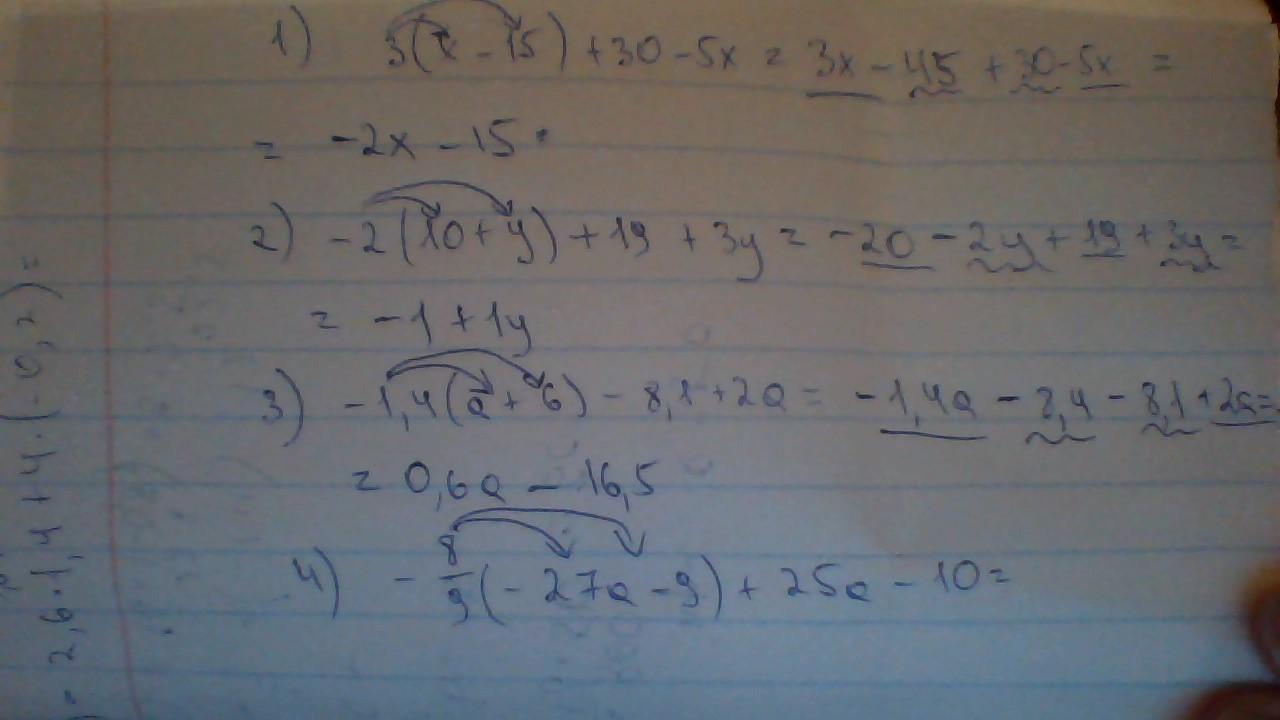 1) 3(x - 15) + 30 - 5x = 3x - 45 + 30 - 5x =
= -2x - 15.
2) -2(10 + y) + 19 + 3y = -20 - 2y + 19 + 3y =
= -1 + 1y
3) -1,4(a + 6) - 8,1 + 2a = -1,4a - 8,4 - 8,1 + 2a =
= 0,6a - 16,5
4) - 8/9 (-27a - 9) + 25a - 10 =
= 2,6 · 1,4 + 4 · (-0,7) =